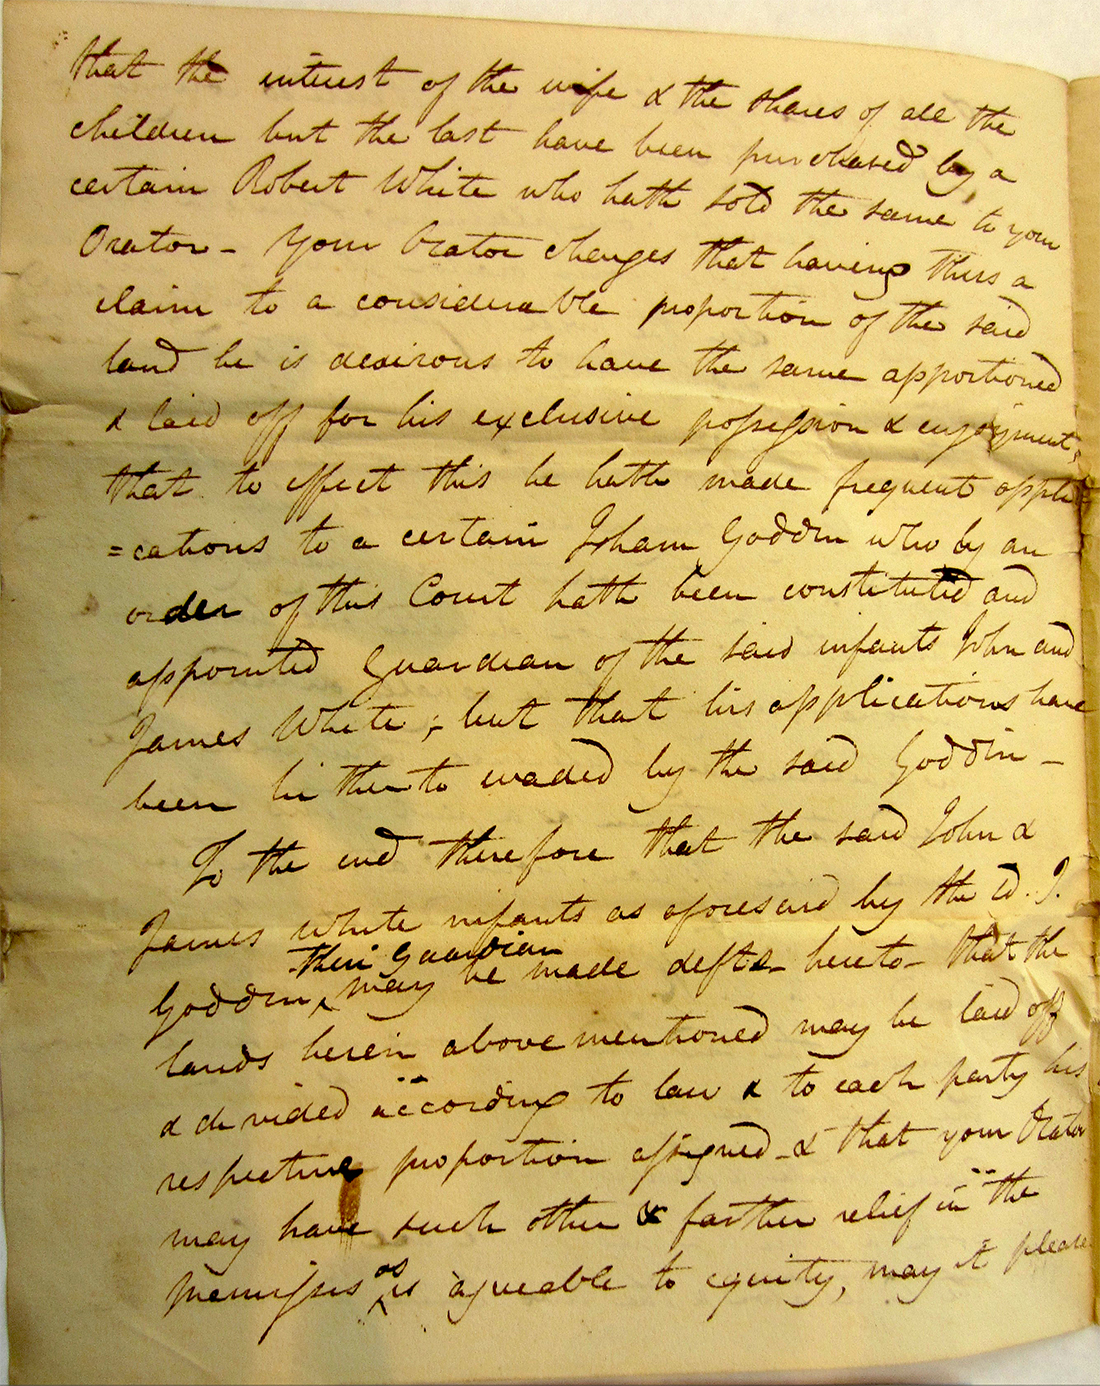 that the interest of the wife & the shares of all the
children but the last have been purchased by a
certain Robert White who hath sold the same to your
Orator - Your Orator charges that having thus a
claim to a considerable proportion of the said
land he is desirous to have the same apportioned
& laid off for his exclusive possession & enjoyment,
that to effect this he hath made frequent appli=
=cations to a certain Isham Goddin who by an
order of this Court hath been constituted and
appointed Guardian of the said infants John and
James White; but that his applications have
been hitherto evaded by the said Goddin -
To the end therefore that the said John &
James White infants as aforesaid by the sd. I.
their Guardian
Goddin ‸ may be made defts - hereto - that the
lands herein above mentioned may be laid off
& divided according to law & to each party his
respective proportion assigned - & that your Orator
may have such other & farther relief in the
as
premisses ‸ is agreable to equity, may it please